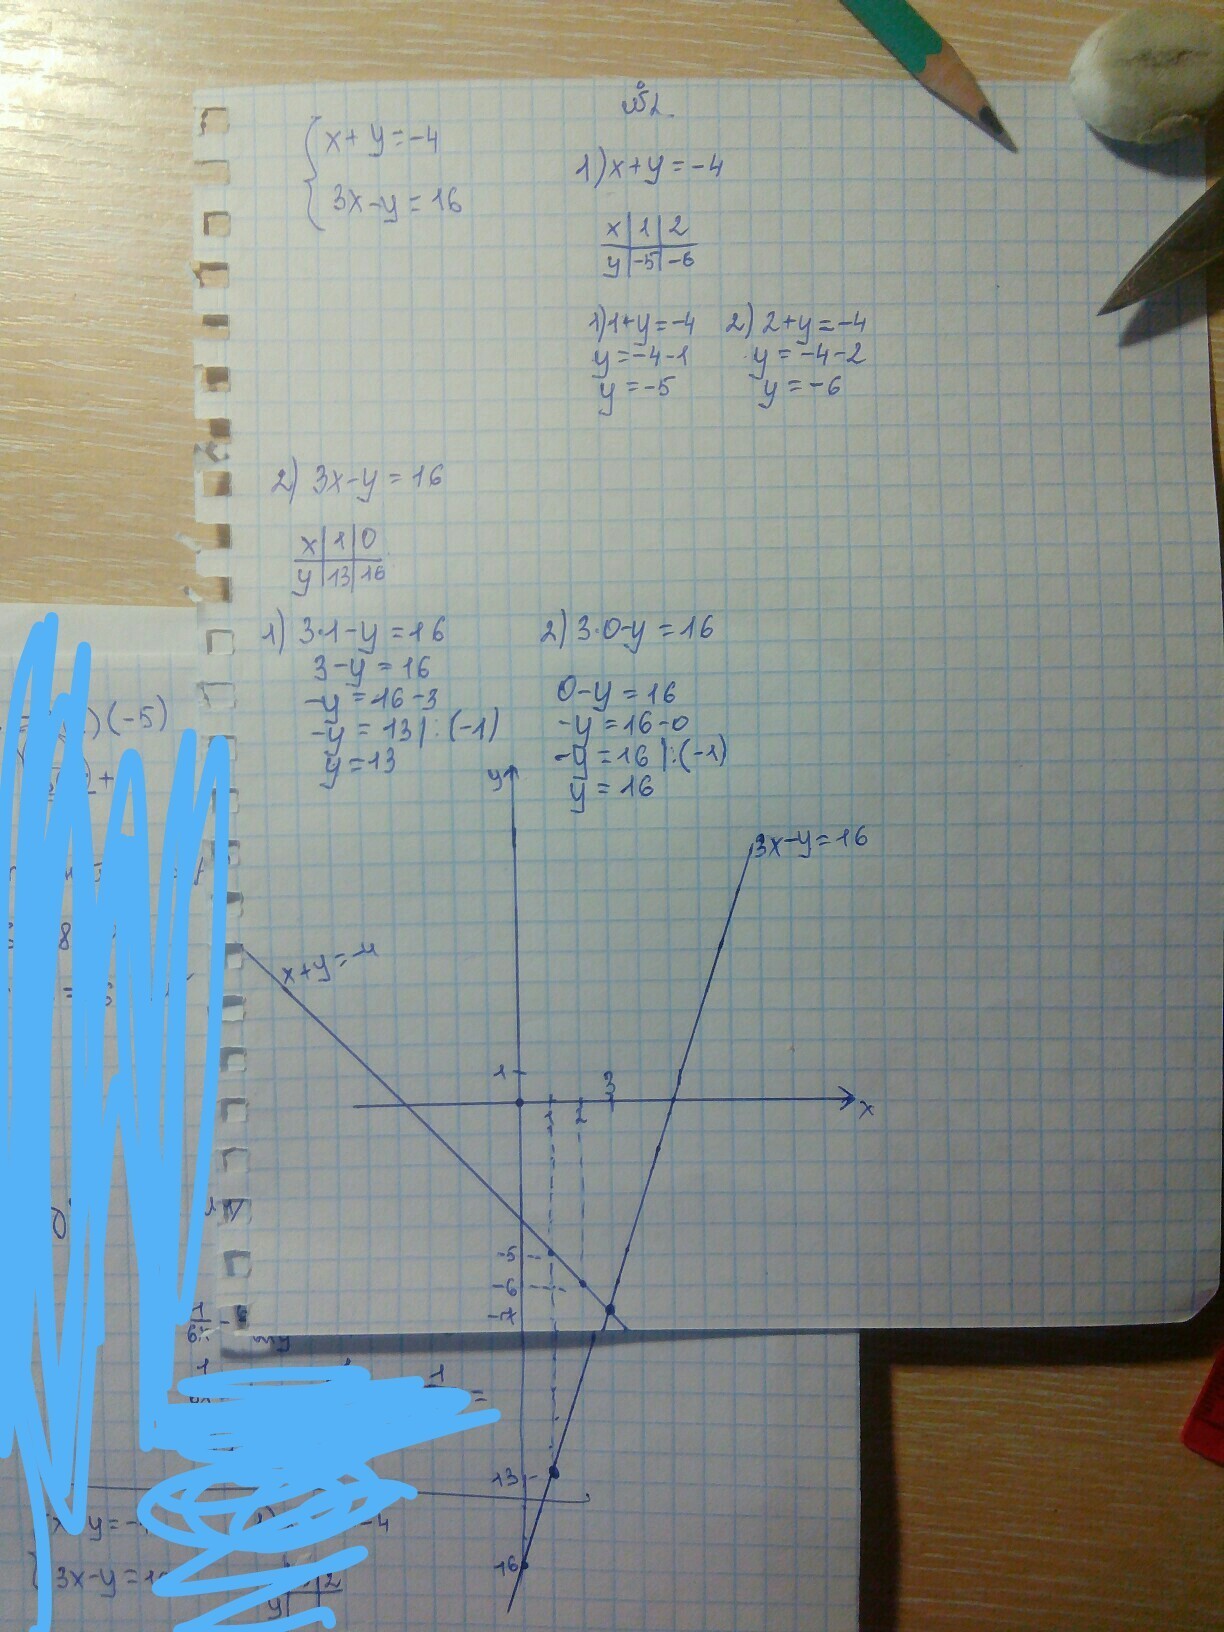 №2.
x+y=-4
3x-y=16
1) x+y=-4
x|1|2
y|-5|-6
1) 1+y=-4 2) 2+y=-4
y=-4-1 y=-4-2
y=-5 y=-6
2) 3x-y=16
x|1|0
y|13|16
1) 3·1-y=16 2) 3·0-y=16
3-y=16 0-y=16
-y=16-3 -y=16-0
-y=13|:(-1) -y=16|:(-1)
y=13 y=16
y
3x-y=16
x+y=-4
1
1 2 3 x
-5
-6
-7
13
16
)(-5)
+
8
1
6x
1
1
=
y=- -4
3x-y=1
2
y